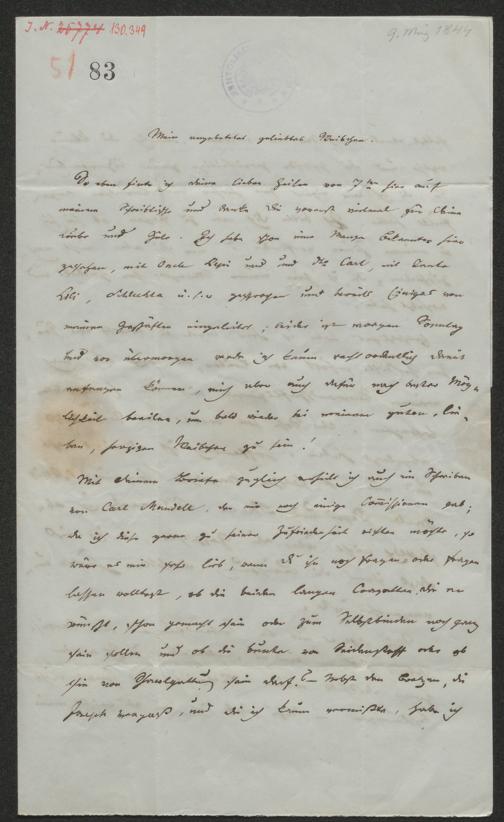 J. N. 25774 130.349
9. März 1844
51 83
Mein angebetetes geliebtes Weibchen.
So eben finde ich deine lieben Zeilen vom 7ten hier auf
meinem Schreibtische und danke dir tausend für deine
Liebe und Güte. Ich habe schon eine Menge Bekannte hier
gesehen, mit Onkel und und Carl, mit Tante
Lili, Schlechta u.s.w. gesprochen und bereits Einiges von
meinen Geschäften eingeleitet; leider ist morgen Sonntag
und vor übermorgen werde ich kaum recht ordentlich damit
anfangen können, mich aber auch dafür nach bester Mög-
lichkeit beeilen, um bald wieder bei meinem guten, lie-
ben, herzigen Weibchen zu sein!
Mit deinem Briefe zugleich erhielt ich auch ein Schreiben
von Carl Mandell, der mir noch einige Commissionen gab;
da ich diese gerne zu seiner Zufriedenheit richten möchte, so
wäre es mir sehr lieb, wenn du ihn noch fragen oder fragen
lassen wolltest, ob die beiden langen Cravatten, die er
wünscht, schon gemacht sein oder zum Selbstbinden noch ganz
sein sollen und ob die bunte von Seidenstoff oder ob
sie von sein darf? – den die
Joseph vergaß, und die ich kaum vermißte, habe ich